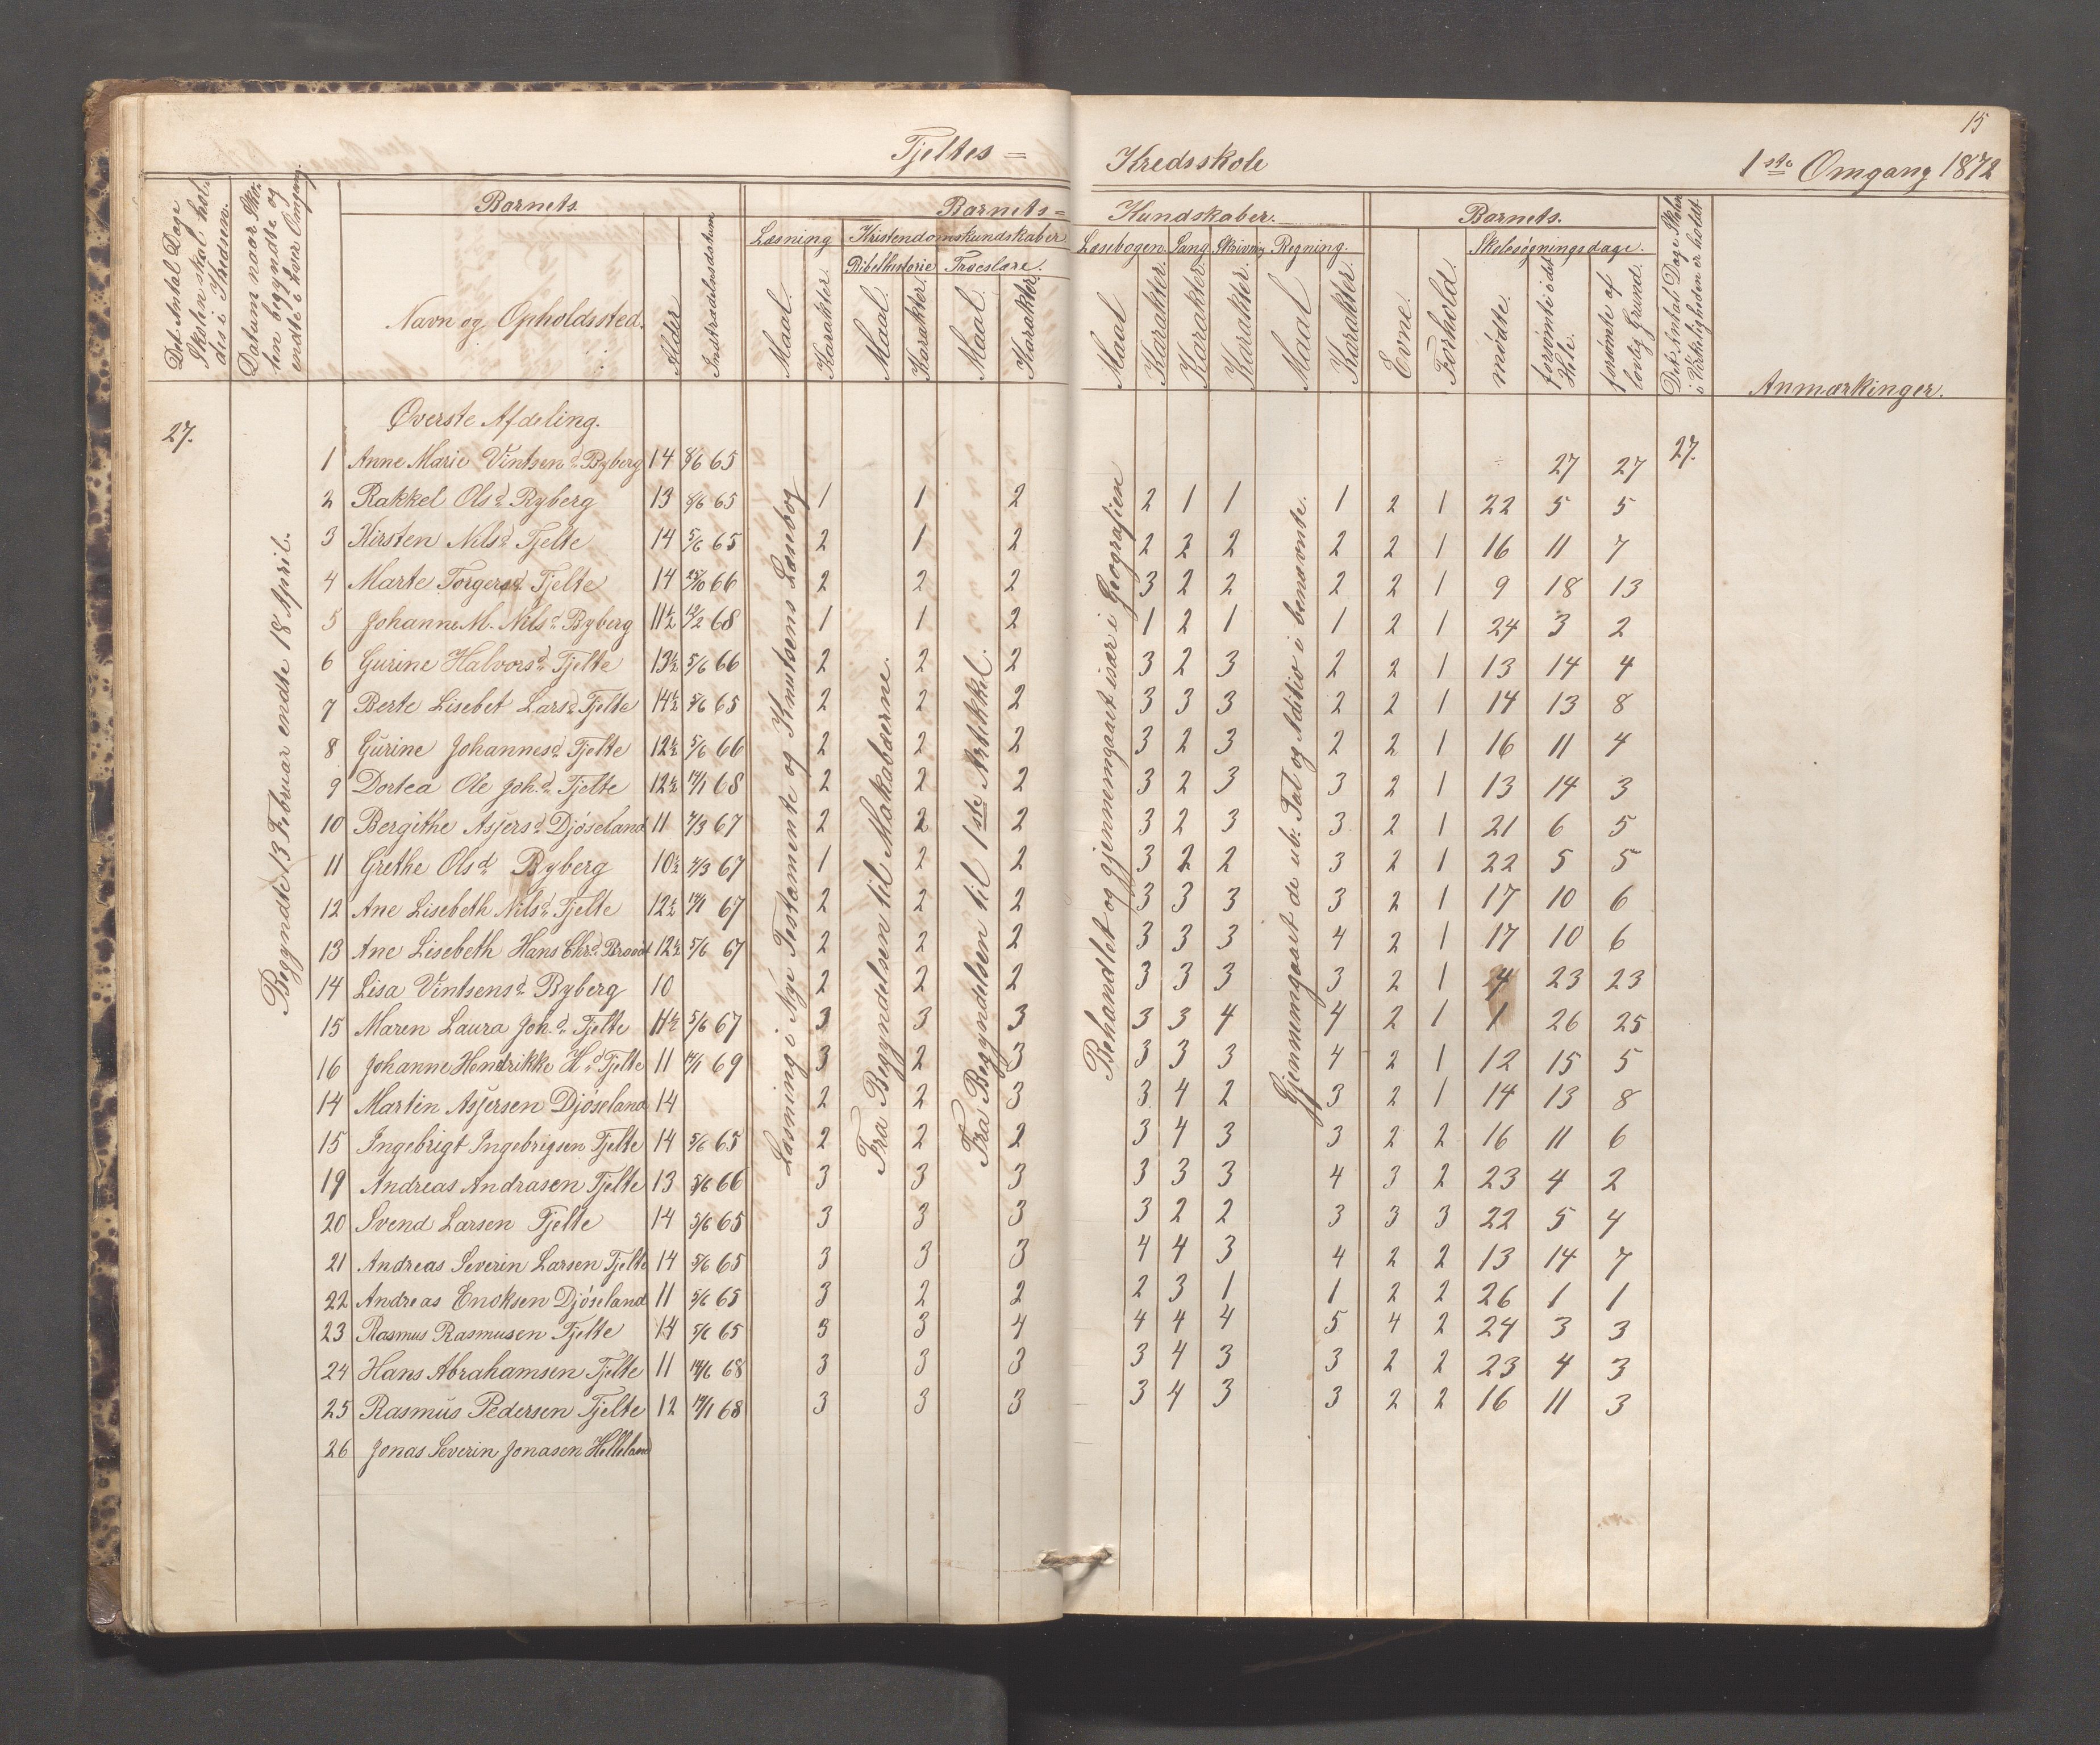 15
Tjeltes = Kredsskole 1ste Omgang 1872
Det Antal Dage Skolen skal holdes i Kredsen.
Datum naar Skolen begyndte og endte i hver Omgang.
Barnets.
Navn og Opholdssted.
Alder
Indtrædelsesdatum
Barnets = Kundskaber.
Læsning
Maal.
Karakter.
Kristendomskundskaber
Bibelhistorie
Maal.
Karakter.
Troeslære.
Maal.
Karakter.
Læsebogen.
Maal
Karakter.
Sang
Karakter
Skrivning
Karakter.
Regning.
Maal
Karakter.
Barnets.
Evne.
Forhold.
Skolesøgningsdage.
mødte.
forsømte i det Hele.
forsømte af lovlig Grund.
Det Antal Dage Skolen i Virkeligheden er holdt
Anmærkinger.
Øverste Afdeling.
27.
27.
Begyndte 13 Februar endte 18 April.
Læsning i Nye Testamente og Knutsens Læsebog
Fra Begyndelsen til Makabæerne.
Fra Begyndelsen til 1ste Artikkel.
Behandlet og gjennemgaaet især i Geografien
Gjennemgaaet de ub. Tal og Aditio i benævnte.
1 Anne Marie Vintsensd. Byberg 14 8/6 65 27 27
2 Rakkel Olsd. Byberg 13 8/6 65 1 1 2 2 1 1 1 2 1 22 5 5
3 Kirsten Nilsd. Tjelte 14 5/6 65 2 1 2 2 2 2 2 2 1 16 11 7
4 Marte Torgersd. Tjelte 14 25/10 66 2 2 2 3 2 2 2 2 1 9 18 13
5 Johanne M. Nilsd. Byberg 11½ 12/2 68 1 1 2 1 2 1 1 2 1 24 3 2
6 Gurine Halvorsd. Tjelte 13½ 5/6 66 2 2 2 3 2 3 2 2 1 13 14 4
7 Berte Lisebet Larsd. Tjelte 14½ 5/6 65 2 2 2 3 3 3 2 2 1 14 13 8
8 Gurine Johannesd. Tjelte 12½ 5/6 66 2 2 2 3 2 3 2 2 1 16 11 4
9 Dortea Ole Joh.d. Tjelte 12½ 14/1 68 2 2 2 3 2 3 3 2 1 13 14 3
10 Bergithe Asjersd. Djøseland 11 7/3 67 2 2 2 3 2 3 3 2 1 21 6 5
11 Grethe Olsd. Byberg 10½ 7/3 67 1 2 2 3 2 2 3 2 1 22 5 5
12 Ane Lisebeth Nilsd. Tjelte 12½ 14/1 67 2 2 2 3 3 3 3 2 1 17 10 6
13 Ane Lisebeth Hans Chr.d. 12½ 5/6 67 2 2 2 3 3 3 4 2 1 17 10 6
14 Lisa Vintsensd. Byberg 10 2 2 2 3 3 3 3 2 1 4 23 23
15 Maren Laura Joh.d. Tjelte 11½ 5/6 67 3 3 3 3 3 4 4 2 1 1 26 25
16 Johanne Hendrikke H.d. Tjelte 11 14/1 69 3 2 3 3 3 3 4 2 1 12 15 5
14 Martin Asjersen Djøseland 14 2 2 3 3 4 2 3 2 1 14 13 8
15 Ingebrigt Ingebrigsen Tjelte 14 5/6 65 2 2 2 3 4 3 3 2 2 16 11 6
19 Andreas Andrasen Tjelte 13 5/6 66 3 3 3 3 3 3 4 3 2 23 4 2
20 Svend Larsen Tjelte 14 5/6 65 3 3 3 3 2 2 3 3 3 22 5 4
21 Andreas Severin Larsen Tjelte 14 5/6 65 3 3 3 4 4 3 4 2 2 13 14 7
22 Andreas Enoksen Djøseland 11 5/6 65 3 2 2 2 3 1 1 2 2 26 1 1
23 Rasmus Rasmusen Tjelte 14 5/6 65 3 3 4 4 4 4 5 4 2 24 3 3
24 Hans Abrahamsen Tjelte 11 14/6 68 3 3 3 3 4 3 3 2 2 23 4 3
25 Rasmus Pedersen Tjelte 12 14/1 68 3 3 3 3 4 3 3 2 2 16 11 3
26 Jonas Severin Jonasen Helleland